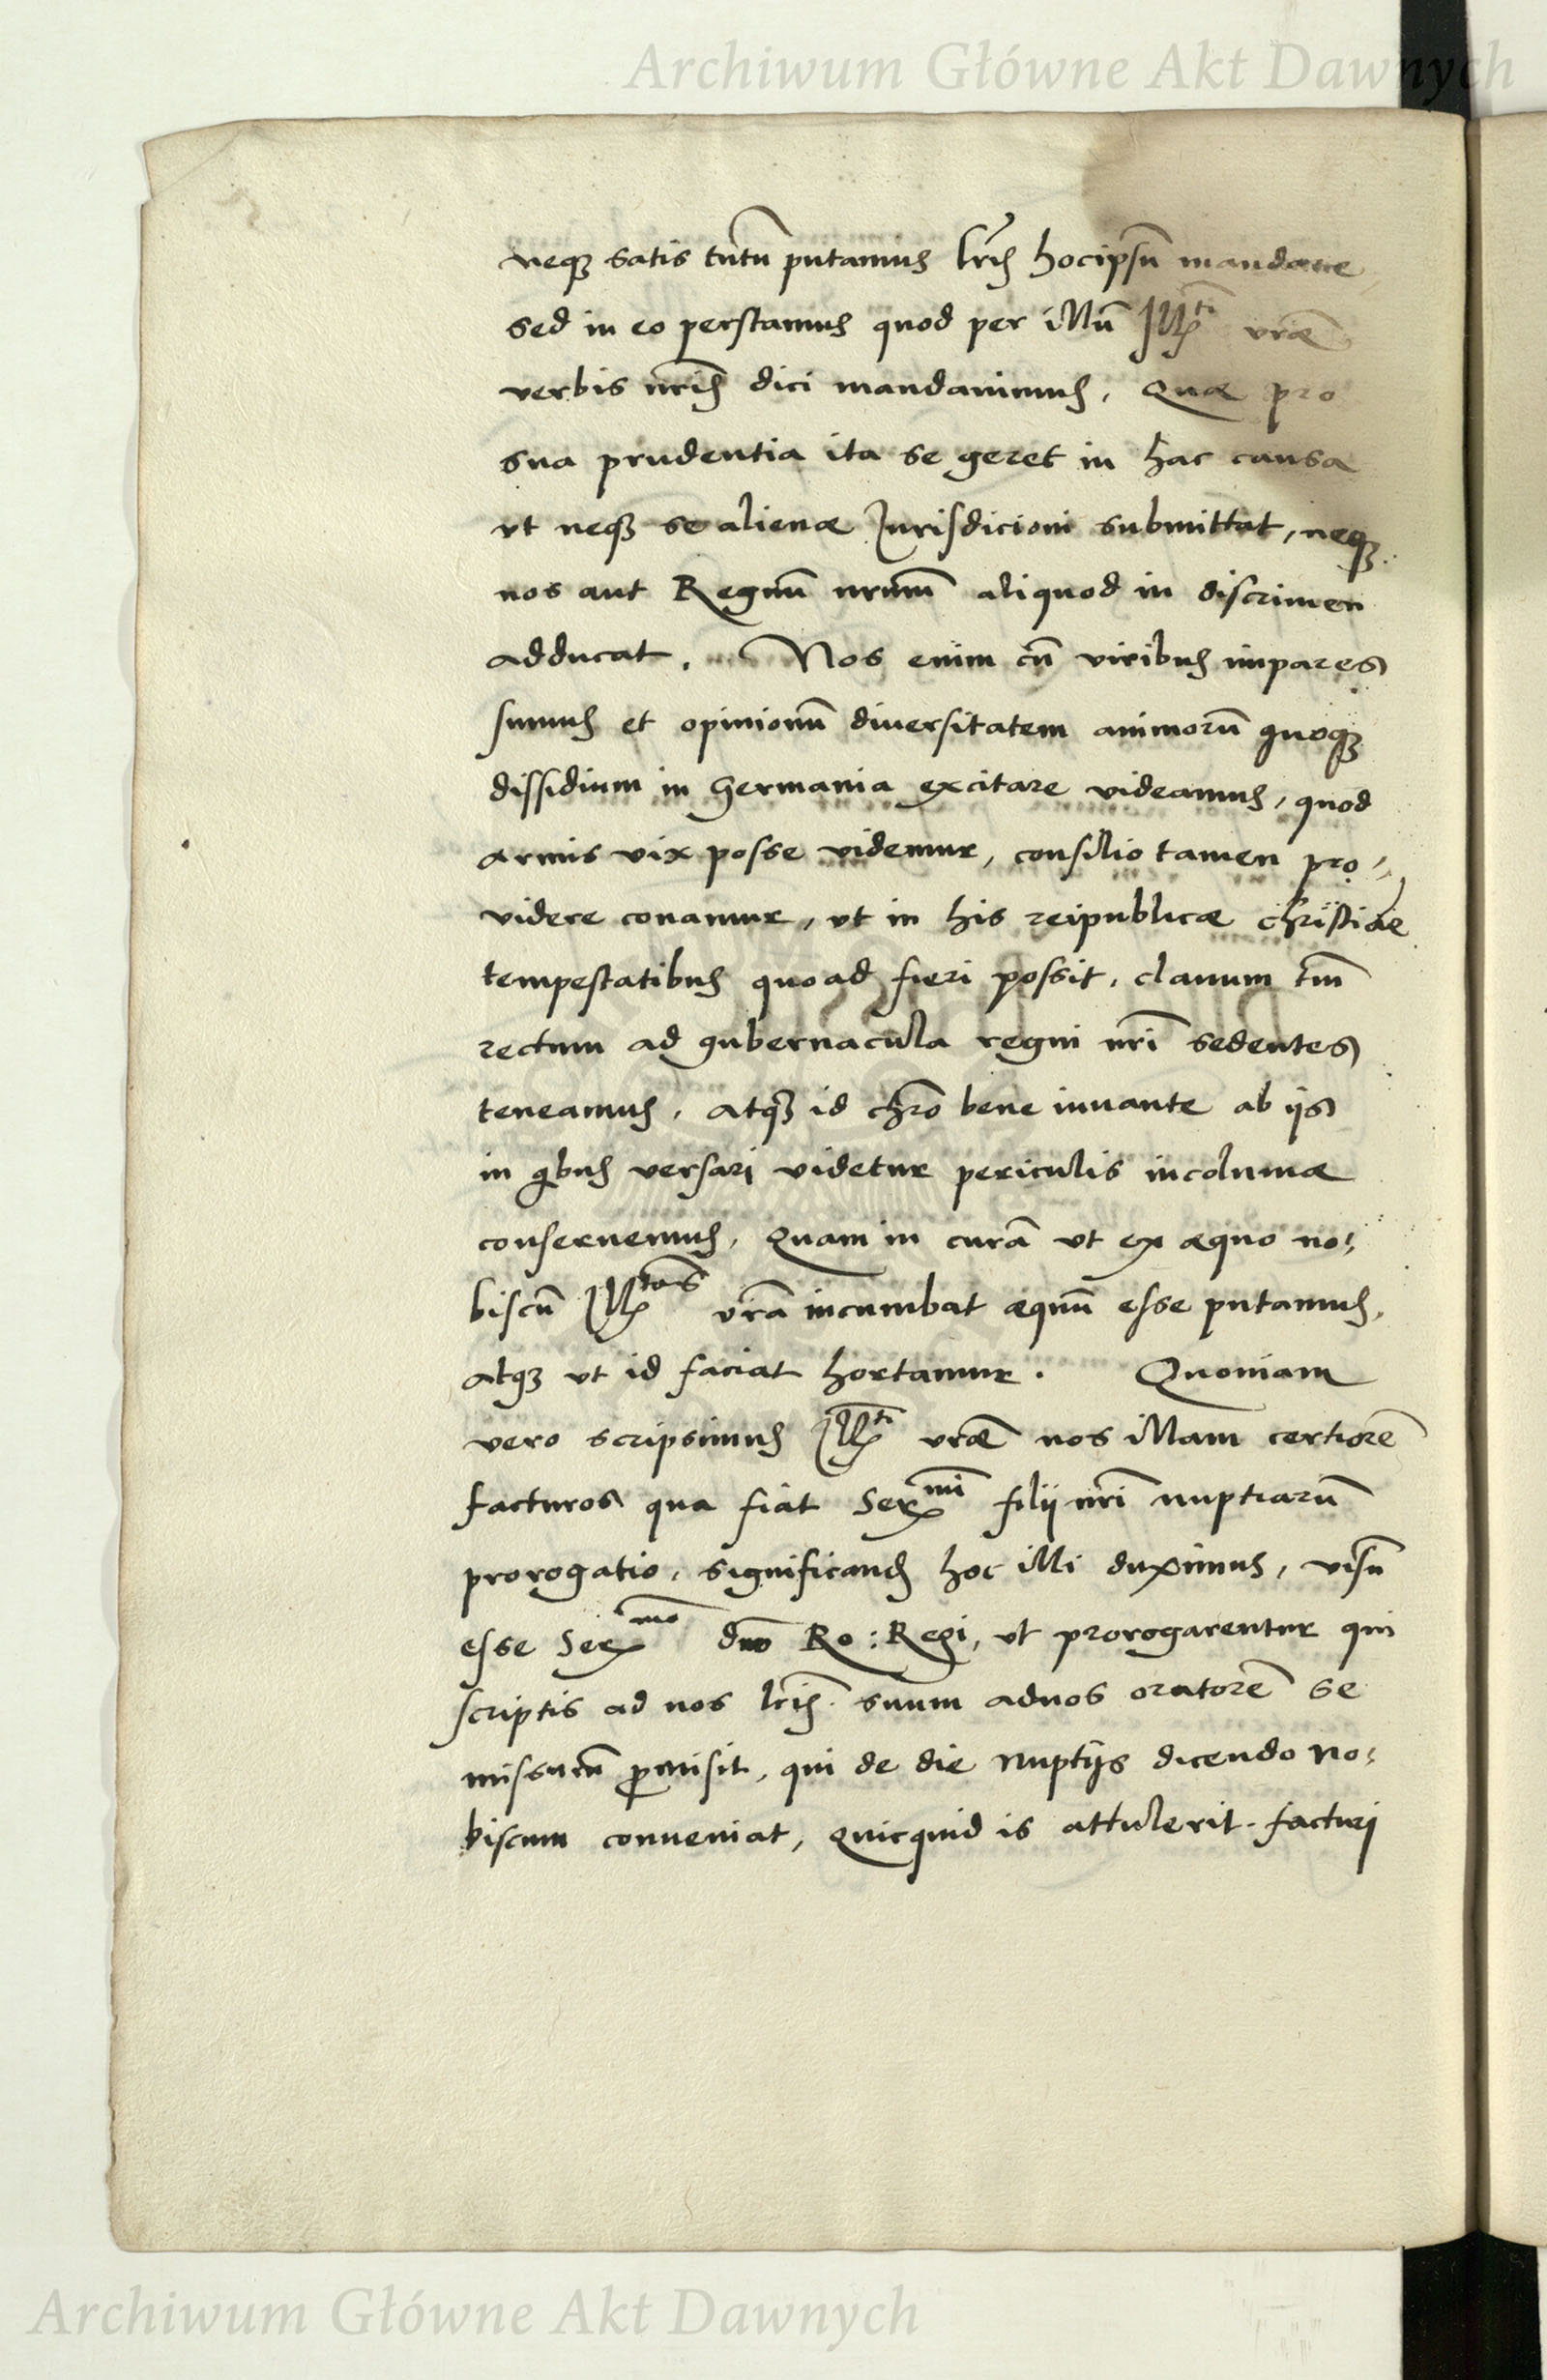 Archiwum Główne Akt Dawnych
neqꝫ satis tutū putamus lr̄is hocipsū mandare
sed in eo perstamus quod per illū Illᵗⁱ vr̄æ
verbis nr̄is dici mandauimus, Quæ pro
sua prudentia ita se geret in hac causa
vt neqꝫ se alienæ Jurisdicioni submittat, neqꝫ
nos aut Regnū nrūm aliquod in discrimen
adducat. Nos enim cū viribus impares
sumus et opinionū diuersitatem animorū quoqꝫ
dissidium in Germania excitare videamus, quod
armis vix posse videmur, consilio tamen pro-
videre conamur, vt in his reipublicæ christiāe
tempestatibus quoad fieri possit, clauum tm̄
rectum ad gubernacula regni nrī sedentes
teneamus, atqꝫ id chr̄o bene iuuante ab ijs
in qbus versari videtur periculis incolumæ
conseruemus, Quam in curā vt ex æquo no-
biscū Illᵗᵃˢ vr̄a incumbat æquū esse putamus,
atqꝫ vt id faciat hortamur. Quoniam
vero scripsimus Illᵗⁱ vr̄æ nos illam certiorē
facturos qua fiat Serᵐⁱ filij nrī nuptiarū
prorogatio, significandū hoc illi duximus, visū
esse Serᵐᵒ dn̄o Ro: Regi, vt prorogarentur qui
scriptis ad nos lr̄is suum adnos oratorē se
missurū ꝓmisit, qui de die nuptijs dicendo no-
biscum conueniat, Quicquid is attulerit. facturi
Archiwum Główne Akt Dawnych